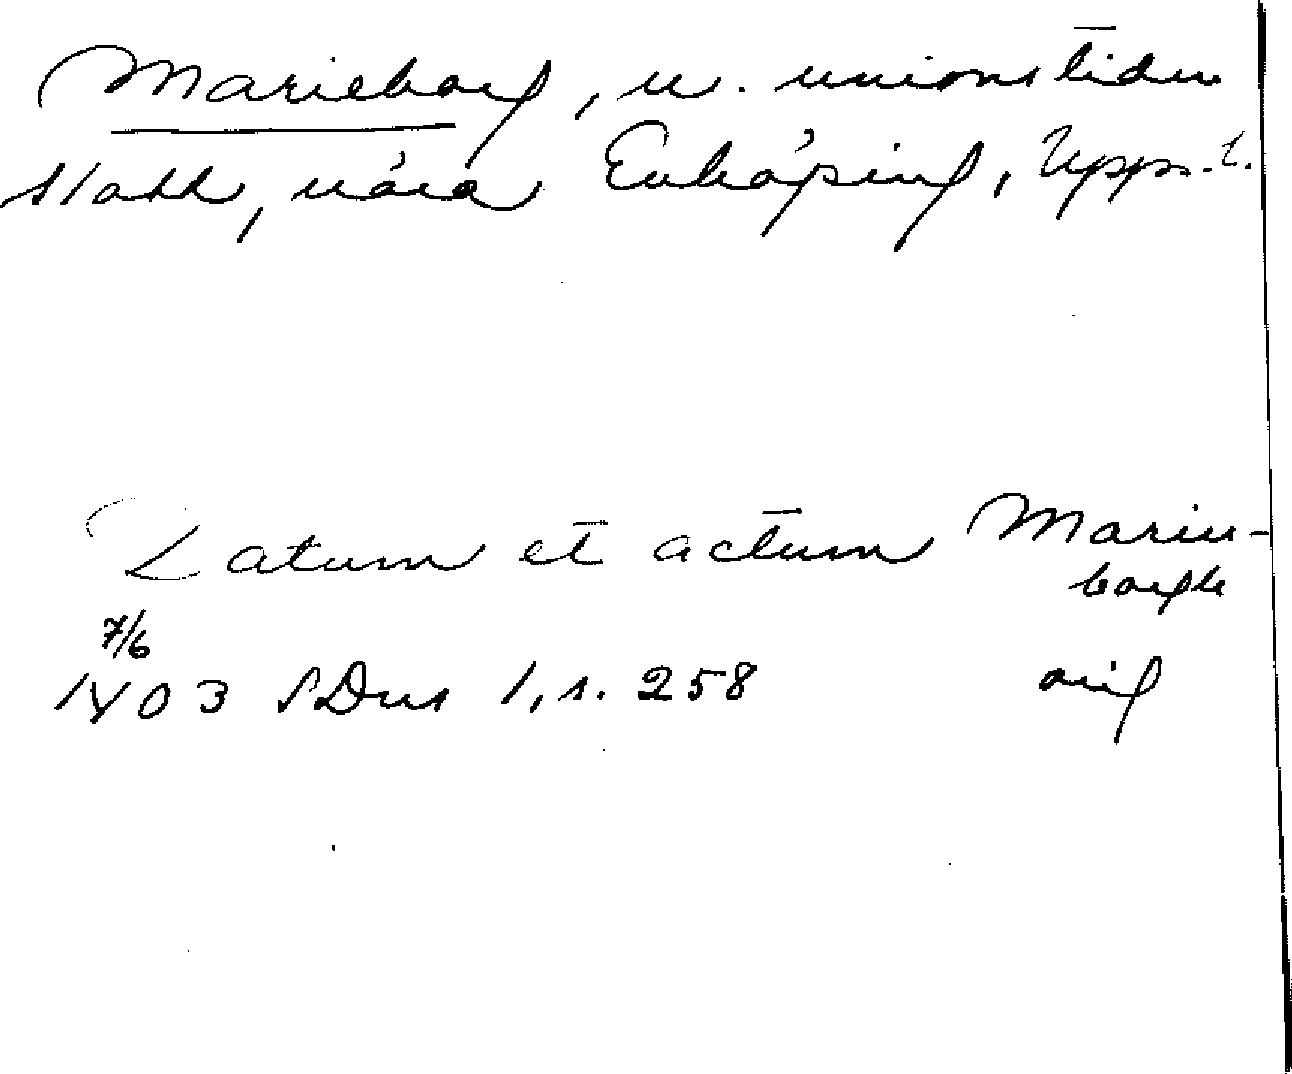 Marieborg, u. unionstiden
slott, nära Enköping, Upps. l.
Datum et actum Marien-
borgh
7/6
1403 SDns 1, s. 258 orig